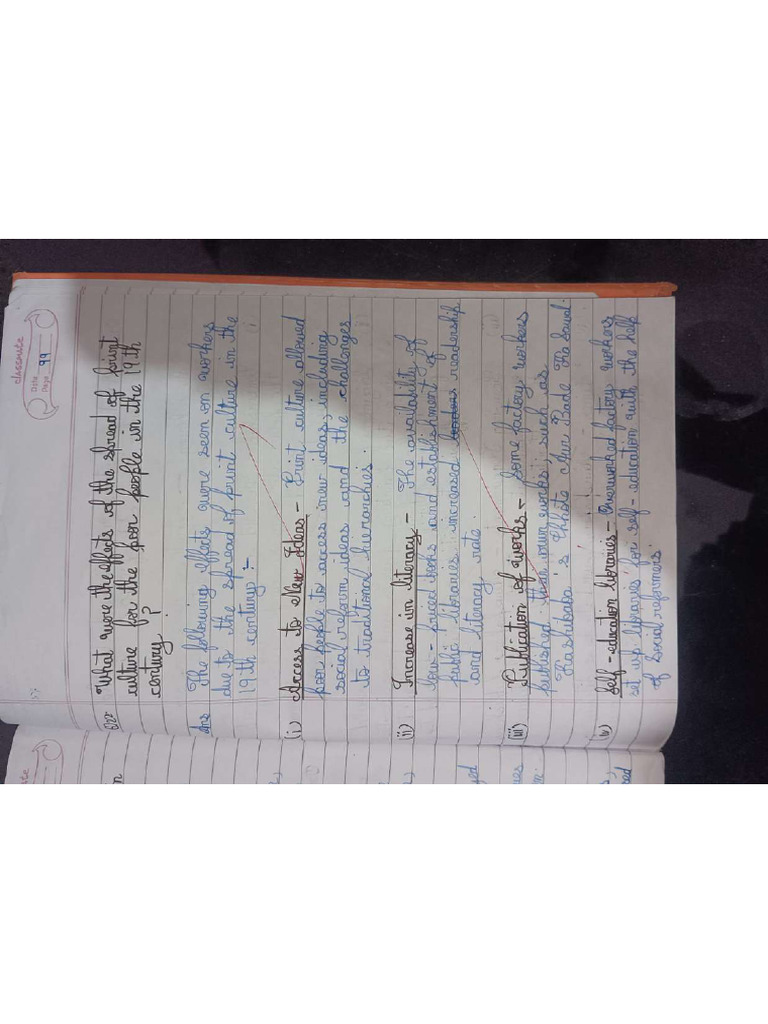 classmate
Date
Page 99
Q22 What were the effects of the spread of print
culture for the poor people in the 19th
century?
Ans The following effects were seen on workers
due to the spread of print culture in the
19th century :-
(i) Access to New Ideas - Print culture allowed
poor people to access new ideas, including
social reform ideas and the challenges
to traditional hierarchies.
(ii) Increase in literacy - The availability of
low-priced books and establishment of
public libraries increased readership
and literacy rate.
(iii) Publication of works - Some factory workers
published their own works, such as
Kashibaba's Chhote Aur Bade Ka Sawal.
(iv) Self-education libraries - Overworked factory workers
set up libraries for self-education with the help
of Social reformers.